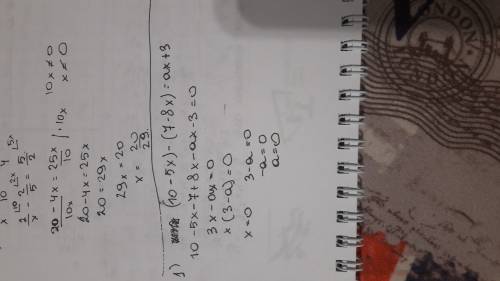 x 10 4
2/x - 2/5 = 5/2
(20 - 4x)/10x = 25x/10 | · 10x 10x ≠ 0
20 - 4x = 25x x ≠ 0
20 = 29x
29x = 20
x = 20/29.
1) (10 - 5x) - (7 - 8x) = ax + 3
10 - 5x - 7 + 8x - ax - 3 = 0
3x - ax = 0
x (3 - a) = 0
x = 0 3 - a = 0
-a = 0
a = 0
LONDON